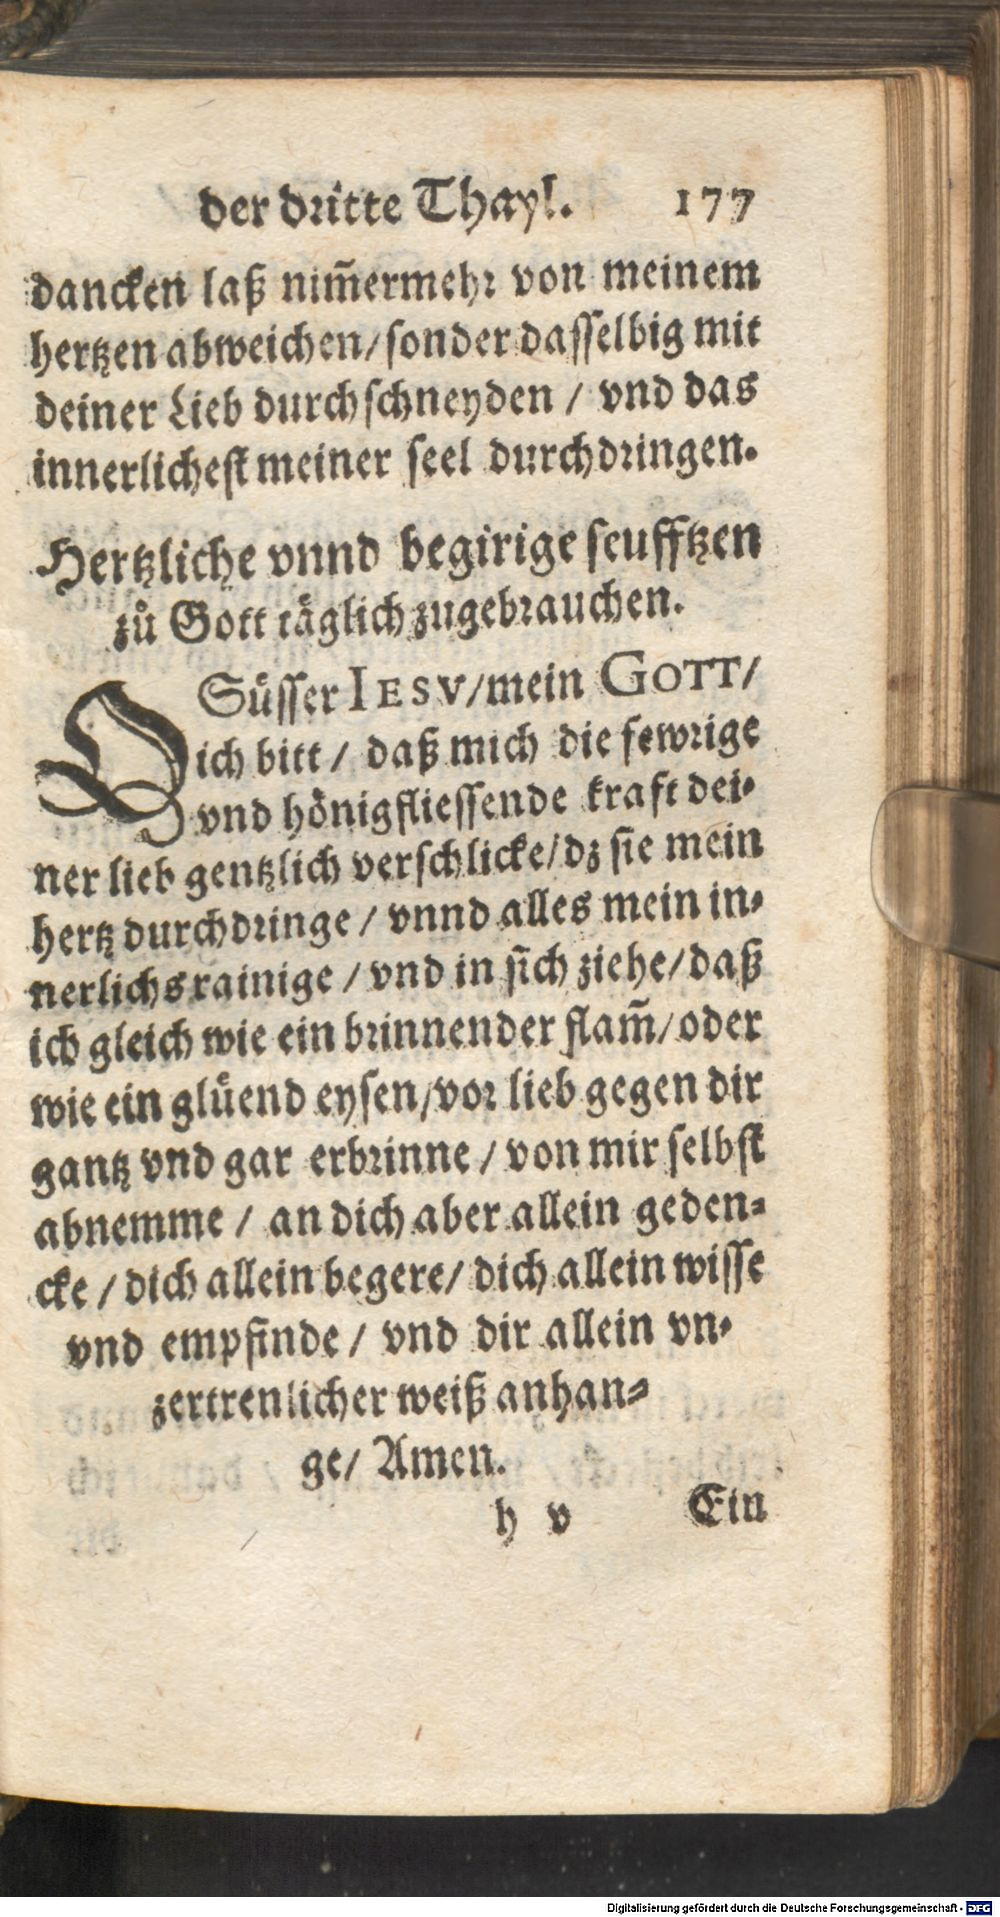 der dritte Thayl. 177
dancken laß nim̃ermehr von meinem
hertzen abweichen/sonder dasselbig mit
deiner Lieb durchschneyden / vnd das
innerlichest meiner seel durchdringen.
Hertzliche vnnd begirige seufftzen
zů Gott täglich zugebrauchen.
O Süsser IESV/mein GOTT/
ich bitt / daß mich die fewrige
vnd hönigfliessende kraft dei-
ner lieb gentzlich verschlicke/dz sie mein
hertz durchdringe / vnnd alles mein in-
nerlichs rainige / vnd in sich ziehe/daß
ich gleich wie ein brinnender flam̃/oder
wie ein glüend eysen/vor lieb gegen dir
gantz vnd gar erbrinne / von mir selbst
abnemme / an dich aber allein geden-
cke / dich allein begere/ dich allein wisse
vnd empfinde / vnd dir allein vn-
zertrenlicher weiß anhan-
ge/ Amen.
h v Ein
Digitalisierung gefördert durch die Deutsche Forschungsgemeinschaft - DFG